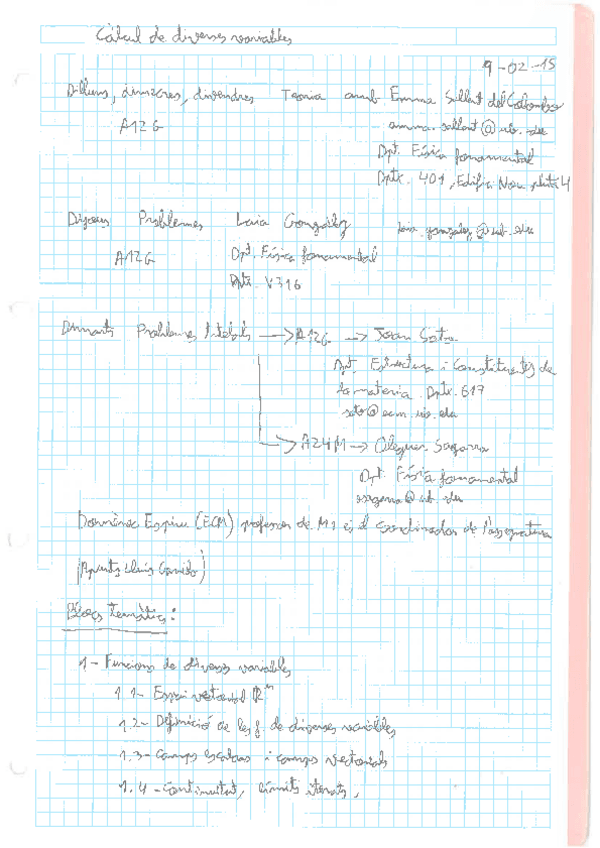 Càlcul de diverses variables
9-02-15
Dilluns, dimecres, divendres Teoria amb Emma
A12G
Dpt. Física fonamental
Dptx. 401, Edifici Nou, planta 4
Dijous Problemes Laia González
A12G Dpt. Física fonamental
Dptx. V316
Dimarts Problemes --> A12G --> Joan Soto
Dpt. Estructura i Constituents de
la matèria. Dptx. 617
soto@ecm.ub.edu
--> A24M --> Oleguer Sagarra
Dpt. Física fonamental
@ub.edu
Domènec Espriu (ECM) professor de M1 és el coordinador de l'assignatura
(Apunts Lluís Garrido)
Blocs Temàtics:
1- Funcions de diverses variables
1.1- Espai vectorial ℝⁿ
1.2- Definició de les f. de diverses variables
1.3- camps escalars i camps vectorials
1.4- continuïtat, límits iterats,